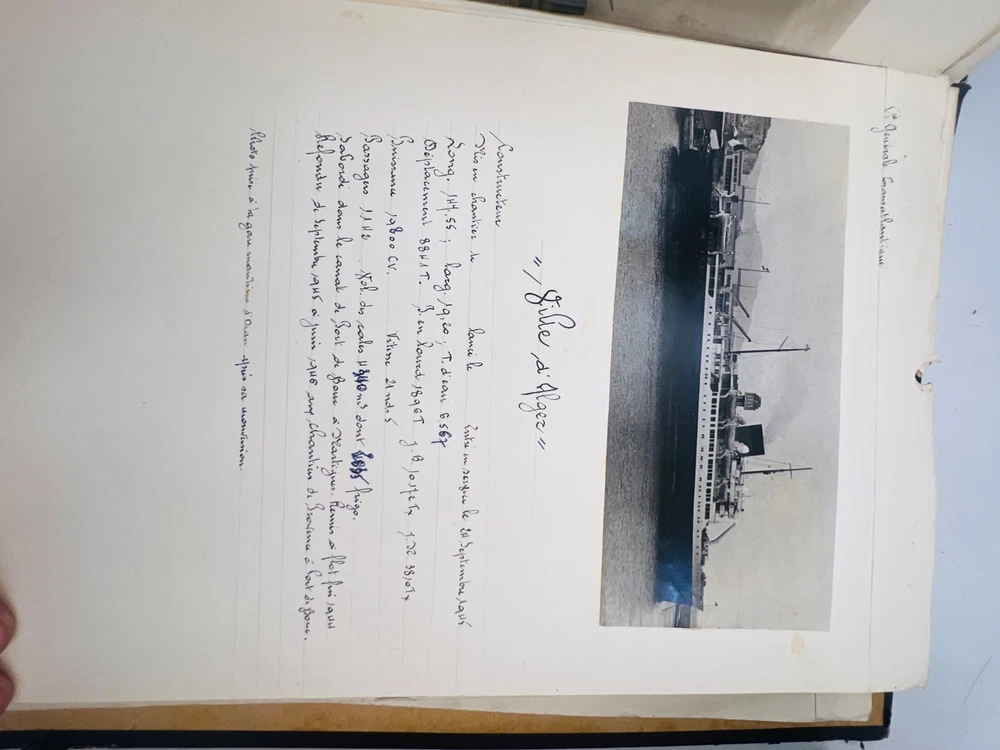 Cie Générale Transatlantique
"Ville d'Alger"
Constructeur
Mis en chantier le lancé le Entré en service le 24 Septembre 1945
Long. 147,55 ; larg. 19,20 ; T. d'eau 6,567
Déplacement 8841 T. P. en lourd 1896 T J.B 10.172 Tx J.N.
Puissance 19800 CV. Vitesse 21 nds 5
Passagers 1142 Vol. des cales 4340 m3 dont frigo.
Sabordé dans le canal de Port de Bouc à Martigues. Remis à flot fin 1944
Refondu de Septembre 1945 à Juin 1948 aux chantiers de Provence à Port de Bouc.
Photo prise à la gare maritime d'Oran après sa